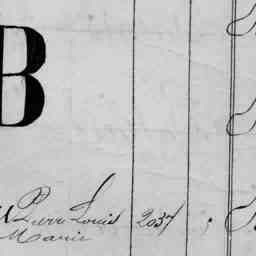 B
Pierre Louis 2037
Marie